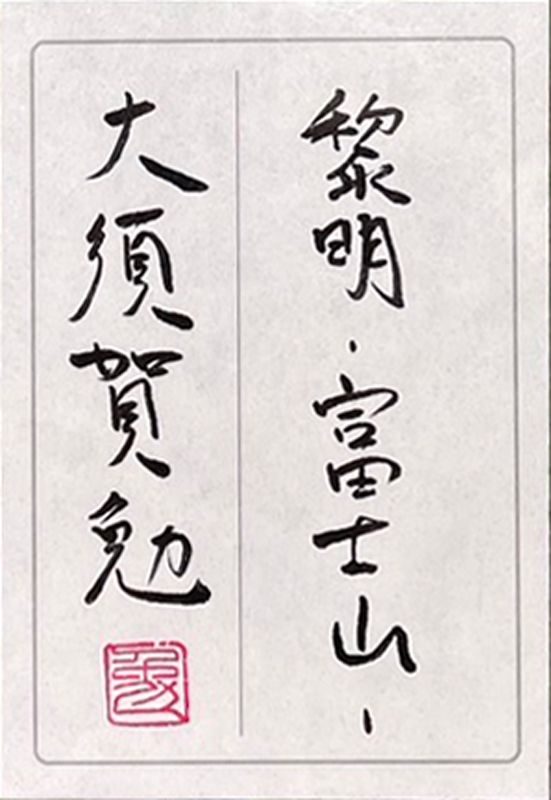 黎明-富士山-
大須賀勉